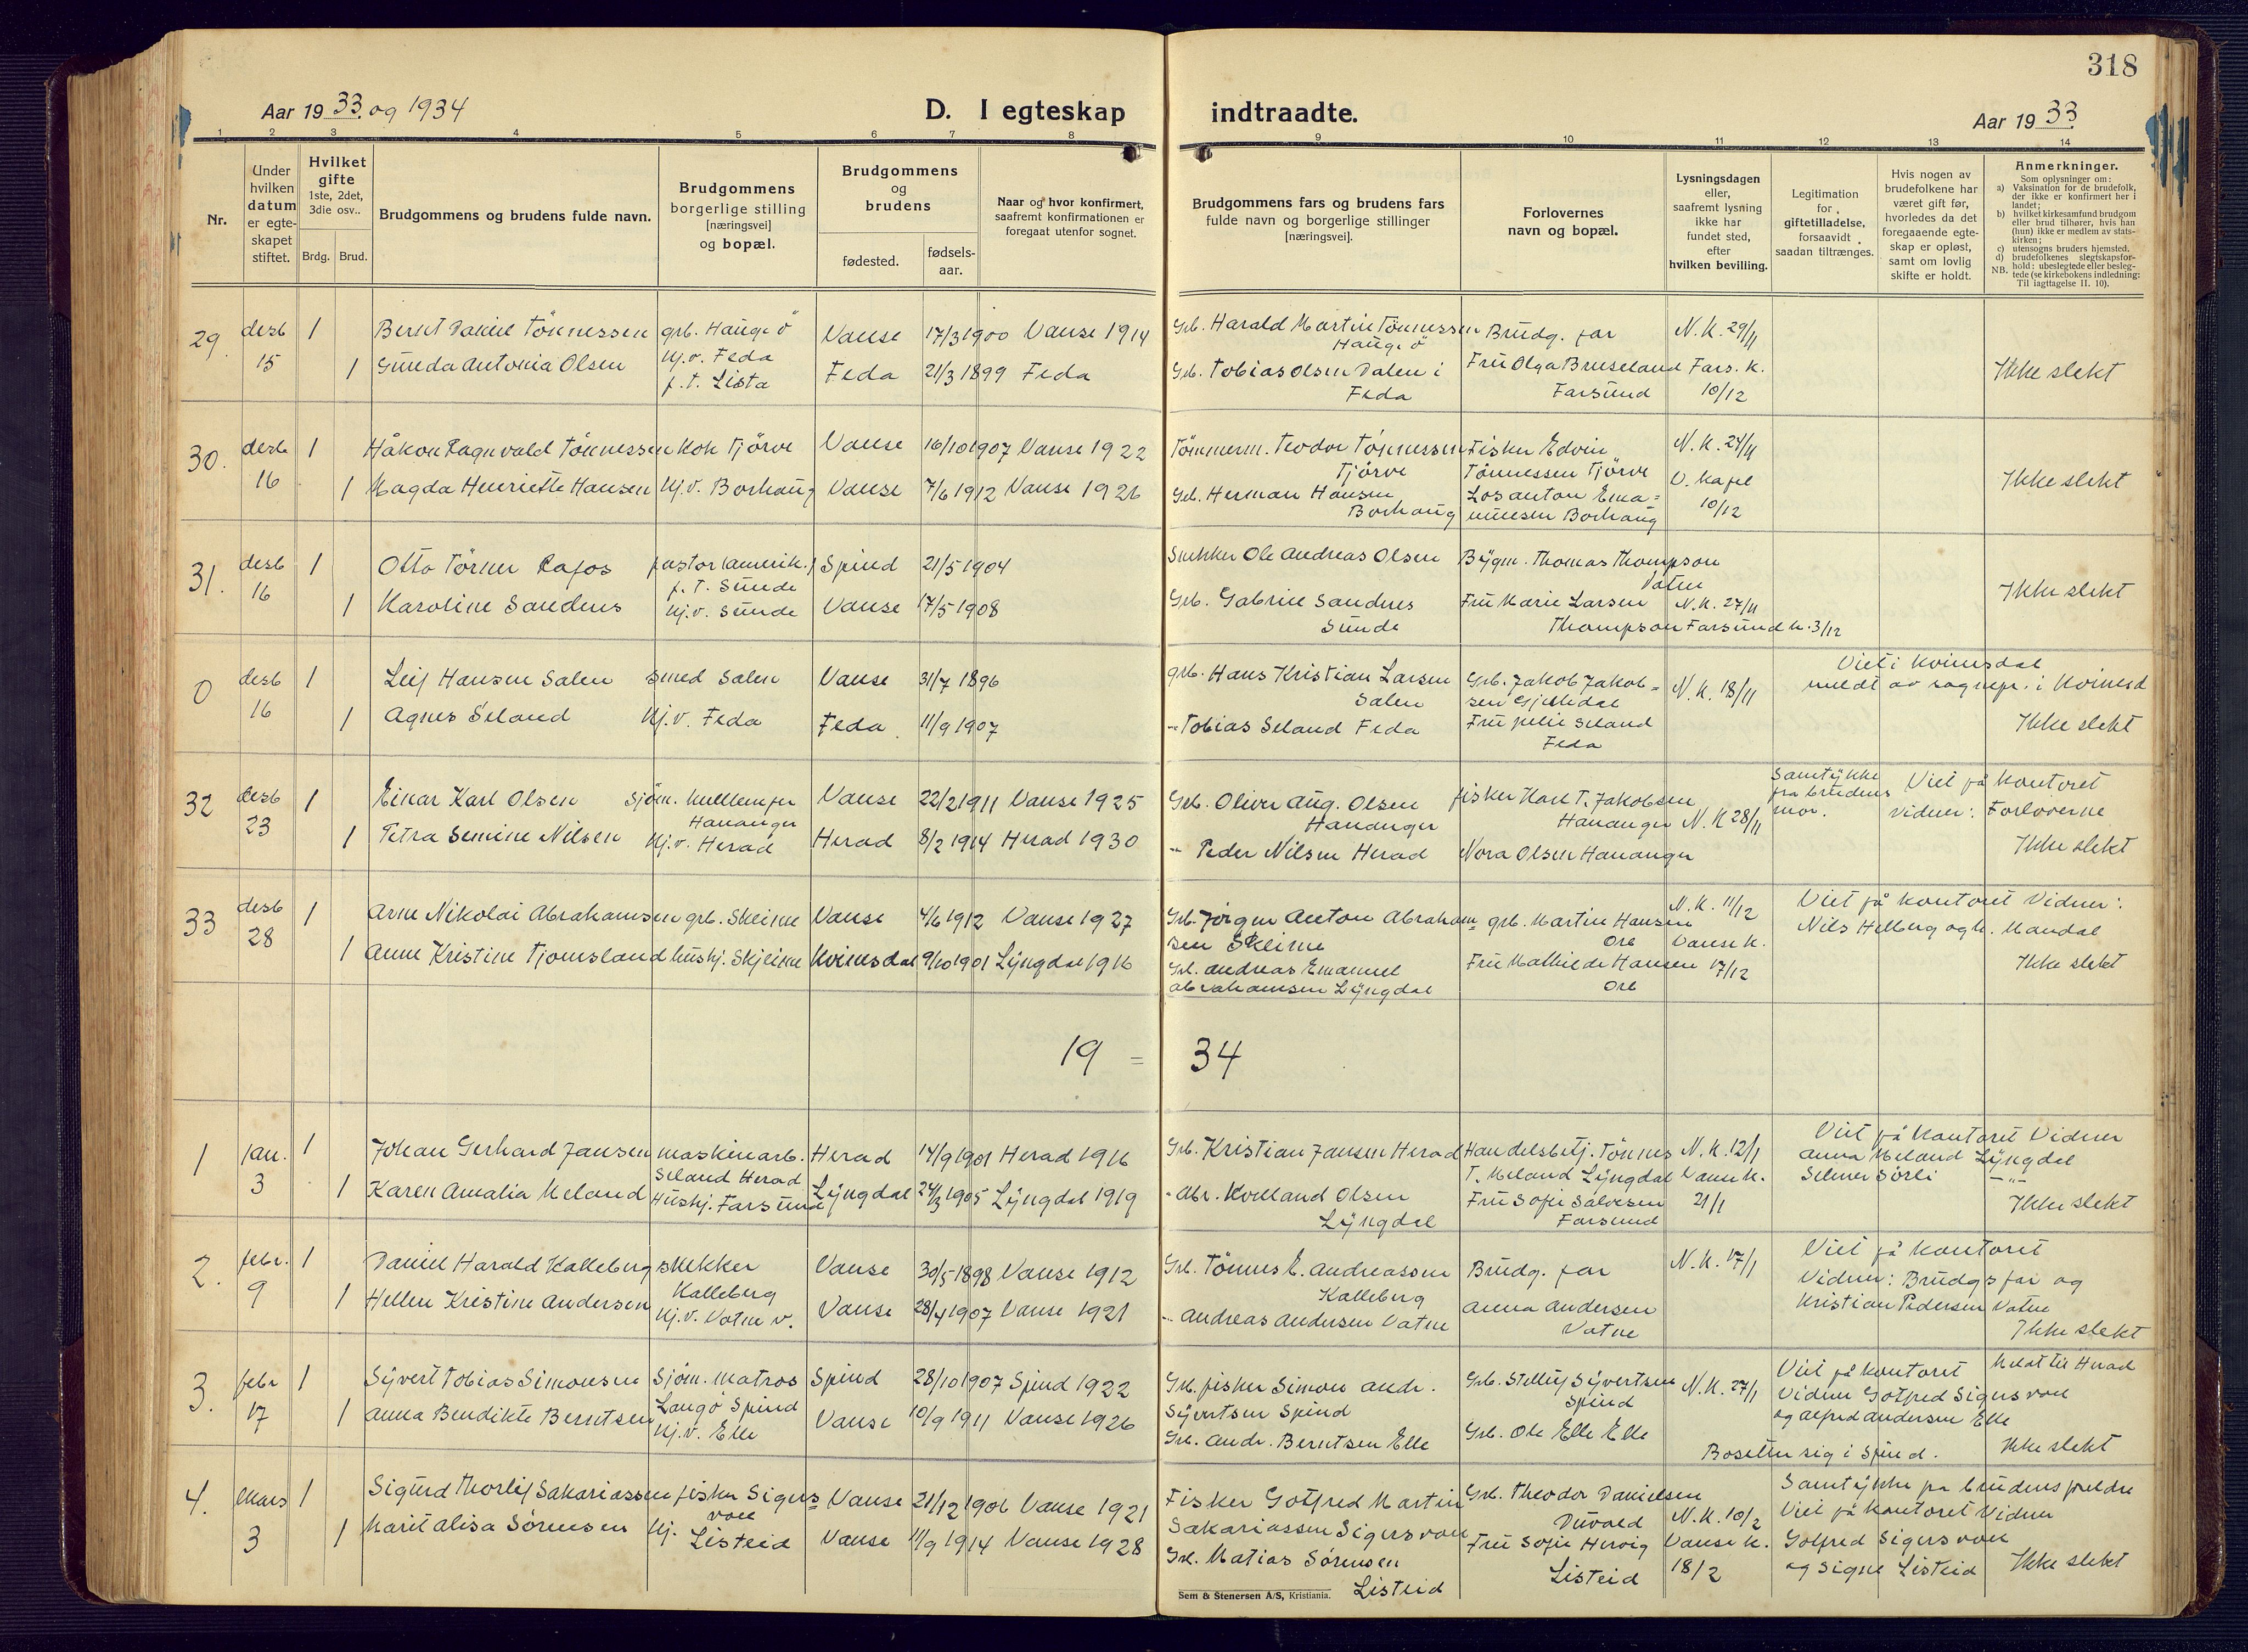 318
Aar 1933 og 1934
D. I egteskap indtraadte.
Aar 1933
1 2 3 4 5 6 7 8 9 10 11 12 13 14
Nr.
Under hvilken datum er egte-skapet stiftet.
Hvilket gifte 1ste, 2det, 3die osv..
Brdg. Brud.
Brudgommens og brudens fulde navn.
Brudgommens borgerlige stilling [næringsvei] og bopæl.
Brudgommens og brudens
fødested.
fødsels-aar.
Naar og hvor konfirmert, saafremt konfirmationen er foregaat utenfor sognet.
Brudgommens fars og brudens fars fulde navn og borgerlige stillinger [næringsvei].
Forlovernes navn og bopæl.
Lysningsdagen eller, saafremt lysning ikke har fundet sted, efter hvilken bevilling.
Legitimation for giftetilladelse, forsaavidt saadan tiltrænges.
Hvis nogen av brudefolkene har været gift før, hvorledes da det foregaaende egte-skap er opløst, samt om lovlig skifte er holdt.
Anmerkninger.
Som oplysninger om:
a) Vaksination for de brudefolk, der ikke er konfirmert her i landet;
b) hvilket kirkesamfund brudgom eller brud tilhører, hvis han (hun) ikke er medlem av stats-kirken;
c) utensogns bruders hjemsted.
d) brudefolkenes slegtskapsfor-hold: ubeslegtede eller besleg-tede (se kirkebokens indledning:
NB. Til iagttagelse II. 10).
29. desb 1 Bernt Daniel Tönnessen grb. Hauge ö Vanse 17/3 1900 Vanse 1914 Grb. Harald Martin Tönnessen Hauge ö Brudg. far N.K. 29/11
15 1 Gunda Antonia Olsen hj.v. Feda f.t. Lista Feda 21/3 1899 Feda Grb. Tobias Olsen Dalen i Feda Fru Olga Bruseland Farsund Fars. K. 10/12 Ikke slekt
30. desb 1 Håkon Ragnvald Tönnessen Kok Tjörve Vanse 16/10 1907 Vanse 1922 Tömmerm. Teodor Tönnessen Tjörve Fisker Edvin Tönnessen Tjörve N.K. 24/11
16 1 Magda Henriette Hansen hj.v. Borhaug Vanse 7/6 1912 Vanse 1926 Grb. Herman Hansen Borhaug Los Anton Ema= nuelsen Borhaug V. Kapel 10/12 Ikke slekt
31. desb 1 Otto Törner Rafos pastor (amerik.) f.T. Sunde Spind 21/5 1904 Snekker Ole Andreas Olsen Bygm. Thomas Thompson Vatne
16 1 Karoline Sandnes hj.v. Sunde Vanse 17/5 1908 Grb. Gabriel Sandnes Sunde Fru Marie Larsen Thompson N.K. 27/11 Farsund k. 3/12 Ikke slekt
0 desb 1 Leif Hansen Salen smed Salen Vanse 31/7 1896 grb. Hans Kristian Larsen Salen Grb. Jakob Jakob= sen N.K. 18/11 Viet i Kvinesdal meldt av sognepr. i Kvinesd
16 1 Agnes Seland hj.v. Feda Feda 11/9 1907 -"- Tobias Seland Feda Fru Julie Seland Feda Ikke slekt
32 desb 1 Einar Karl Olsen Sjöm. Hananger Vanse 22/2 1911 Vanse 1925 Grb. Oliver Aug. Olsen Hananger fisker Karl T. Jakobsen Hananger N.K 28/11 Samtykke fra brudens mor. Viet på kontoret vidner: Forloverne
23 1 Petra Semine Nilsen hj.v. Herad Herad 8/2 1914 Herad 1930 -"- Peder Nilsen Herad Nora Olsen Hananger Ikke slekt
33 desb 1 Arne Nikolai Abrahamsen grb. Skeime Vanse 4/6 1912 Vanse 1927 Grb. Jörgen Anton Abraham= sen Skeime grb. Martin Hansen Ore N.K. 11/12 Vanse k. Viet på kontoret Vidner: Nils Helberg og h. Mandal
28 1 Anne Kristine Tjomsland hushj. Skjeime Kvinesdal 9/10 1901 Lyngdal 1916 Grb. Andreas Emanuel Abrahamsen Lyngdal Fru Mathilde Hansen Ore 17/12 Ikke slekt
19 = 34
1 jan. 1 Johan Gerhard Jansen maskinarb. Seland Herad Herad 14/9 1901 Herad 1916 Grb. Kristian Jansen Herad Handelsbetj. Tönnes T. Meland Lyngdal N.K. 12/1 Vanse k. Viet på kontoret Vidner Anna Meland Lyngdal Selmer Sörli -"-
3 1 Karen Amalia Meland Hushj. Farsund Lyngdal 24/3 1905 Lyngdal 1919 - Abr. Kvelland Olsen Lyngdal Fru Sofie Salvesen Farsund 21/1 Ikke slekt
2. febr. 1 Daniel Harald Kalleberg snekker Kalleberg Vanse 30/5 1898 Vanse 1912 Grb. Tönnes E. Andreassen Kalleberg Brudg. far N.K. 17/1 Viet på kontoret Vidner: Brudgs far og Kristian Pedersen Vatne
9 1 Hellen Kristine Andersen hj.v. Vatne v. Vanse 28/4 1907 Vanse 1921 -"- Andreas Andersen Vatne Anna Andersen Vatne Ikke slekt
3. febr 1 Syvert Tobias Simonsen Sjöm. Matros Langö Spind Spind 28/10 1907 Spind 1922 Grb. fisker Simon Andr. Syvertsen Spind Grb. Syvertsen Spind N.K. 27/1 Viet på kontoret Vidner Gotfred Sigersvoll og Alfred Andersen Elle Meldt til Herad
17 1 Anna Bendikte Berntsen hj.v. Elle Vanse 10/9 1911 Vanse 1926 Grb. Andr. Berntsen Elle Grb. Ole Elle Elle Bosetter sig i Spind. Ikke slekt
4. Mars 1 Sigurd Thorleif Sakariassen fisker Sigers= voll Vanse 21/12 1906 Vanse 1921 Fisker Gotfred Martin Sakariassen Sigersvoll Grb. Theodor Danielsen N.K. 10/2 Samtykke fra brudens foreldre Viet på kontoret Vidner
3 1 Marit Alisa Sörensen hj. Listeid Vanse 11/9 1914 Vanse 1928 Grb. Matias Sörensen Listeid Fru Sofie Hervig Listeid Vanse k. 18/2 Gotfred Sigersvoll og Signe Listeid Ikke slekt
Sem & Stenersen A/S, Kristiania.